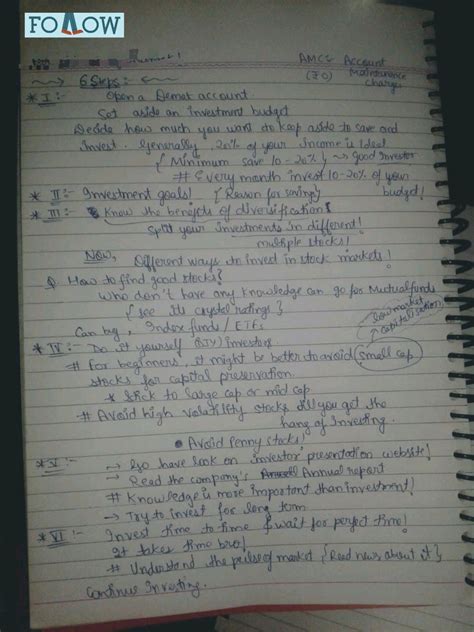 FOLLOW
AMC: Account
6 Steps:-
(70) Maintenance
charges
* I :- Open a Demat account.
Set aside an investment budget
Decide how much you want to keep aside to save and
Invest. Generally, 20% of your Income is Ideal
{ Minimum save 10-20% } → Good Investor
# Every month invest 10-20% of your
budget!
* II :- Investment goals! { Reason for saving }
* III :- Know the benefits of diversification!
Split your investments in different!
multiple stocks!
Now, Different ways to invest in stock markets!
Q. How to find good stocks?
Who don't have any knowledge can go for Mutual funds
{ see Its crystal ratings }
low market
capitalisation
Can buy, Index funds / ETFs
* IV :- Do it yourself investors
# For beginners, it might be better to avoid small cap
stocks for capital preservation
* stick to large cap or mid cap
# Avoid high volatility stocks till you get the
hang of Investing.
• Avoid Penny stocks!
* V :- → Go have look on 'investor' presentation website!
→ Read the company's Annual report
# Knowledge is more important than investment!
→ Try to invest for long term
* VI :- Invest time to time & wait for perfect time!
It takes time bro!
# Understand the pulse of market { Read news about it }
Continue Investing.